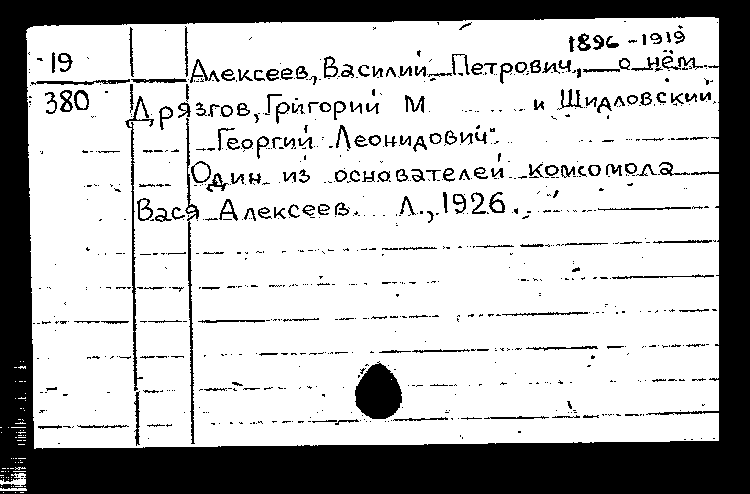 1896-1919
19 Алексеев, Василий Петрович, о нём
380 Дрязгов, Григорий М и Шидловский,
Георгий Леонидович.
Один из основателей комсомола
Вася Алексеев. Л., 1926.